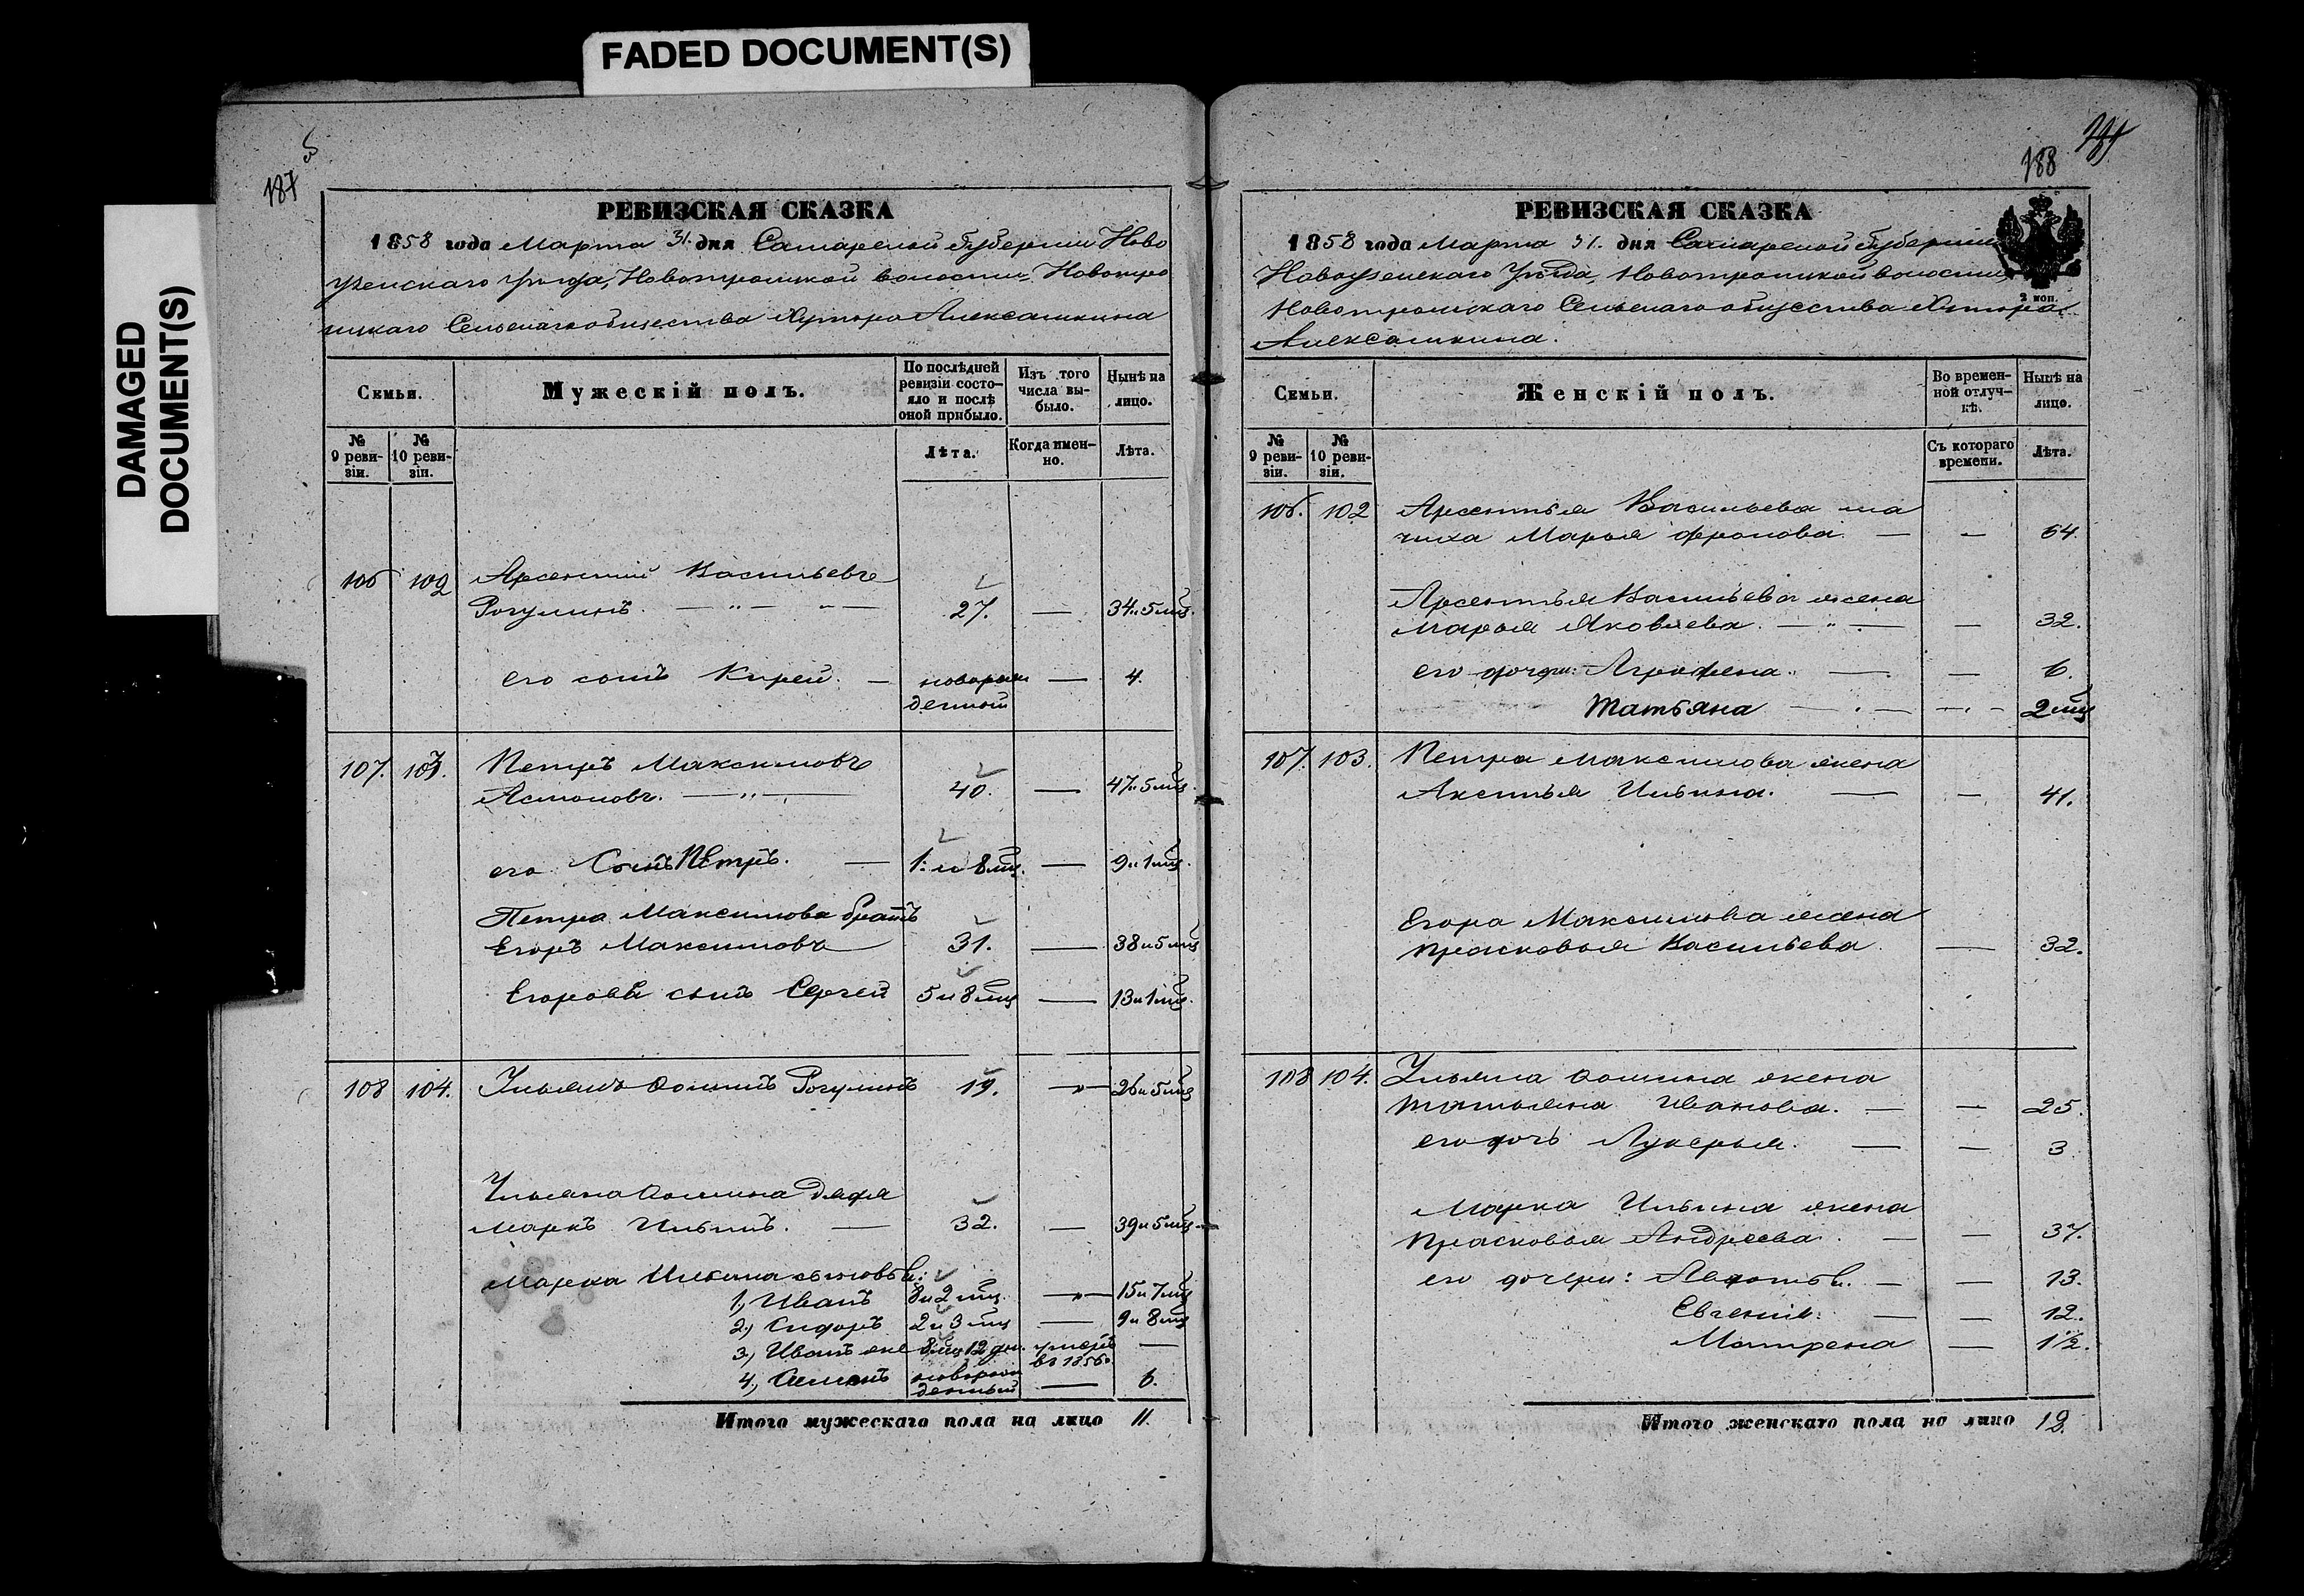 FADED DOCUMENT(S)
DAMAGED
DOCUMENT(S)
187
РЕВИЗСКАЯ СКАЗКА
1858 года Марта 31. дня Самарской Губернии Ново
узенскаго Уѣзда, Новотроицкой волости Новотро
ицкаго Сельскаго общества Хутора Алексашкина
Семьи.
Мужескій полъ.
По послѣдней ревизіи состояло и послѣ оной прибыло.
Изъ того числа выбыло.
Нынѣ на лицо.
№ 9 ревизіи.
№ 10 ревизіи.
Лѣта.
Когда именно.
Лѣта.
106 102 Арсентий Васильевъ
Рогулинъ. 27. — 34 и 5 мц.
его сынъ Кирей. — новорож — 4.
денный
107. 103. Петръ Максимовъ
40. — 47 и 5 мц.
его Сынъ Петръ. — 1. и 8 мц. — 9 и 1 мц.
Петра Максимова братъ
Егоръ Максимовъ 31. — 38 и 5 мц
Егоровъ сынъ Сергей 5 и 8 мц — 13 и 1 мц.
108 104. Ульянъ Фоминъ Рогулинъ 19. — 26 и 5 мц
Ульяна Фомина дядя
Маркъ Ильинъ. — 32. — 39 и 5 мц
Марка Ильина сыновья:
1, Иванъ 8 и 2 мц. — 15 и 7 мц
2, Сидоръ 2 и 3 мц — 9 и 8 мц
3, Иванъ же 8 мц 12 дн. умеръ —
въ 1856
4, Семенъ новорож — 6.
денный
Итого мужескаго пола на лицо 11.
188
РЕВИЗСКАЯ СКАЗКА
1858 года Марта 31. дня Самарской Губернии
Новоузенскаго Уѣзда, Новотроицкой волости,
Новотроицкаго Сельскаго общества Хутора
Алексашкина.
2 коп.
Семьи.
Женскій полъ.
Во временной отлучкѣ.
Нынѣ на лицо.
№ 9 ревизіи.
№ 10 ревизіи.
Съ котораго времени.
Лѣта.
106. 102 Арсентья Васильева ма
чиха Марья Фролова. — - 64.
Арсентья Васильева жена
Марья Яковлева. — — 32.
его дочери: Аграфена. — — 6.
Татьяна — — 2 мц
107. 103. Петра Максимова жена
Аксинья Ильина. — — 41.
Егора Максимова жена
Прасковья Васильева. — 32.
108 104. Ульяна Фомина жена
Татьяна Иванова. — — 25.
его дочь Лукерья. — — 3
Марка Ильина жена
Прасковья Андреева. — — 37.
его дочери: — — 13.
Евгения. — — 12.
Матрена — 1½.
Итого женскаго пола на лицо 12.